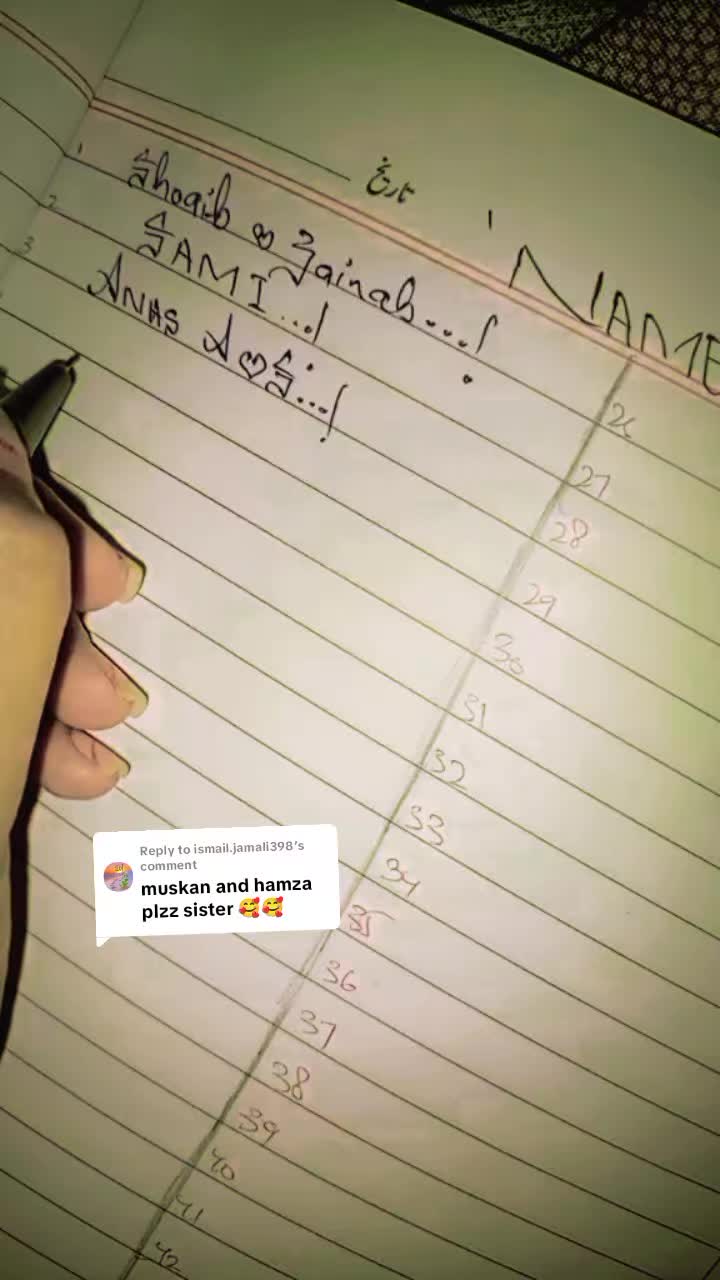 تاریخ
'NAME
1 Shoaib ღ Zainab...!
2 SAMI...!
3 ANAS A ღ S...!
26
27
28
29
30
31
32
33
34
35
36
37
38
39
40
41
42
Reply to ismail.jamali398's
comment
muskan and hamza
plzz sister 🥰🥰